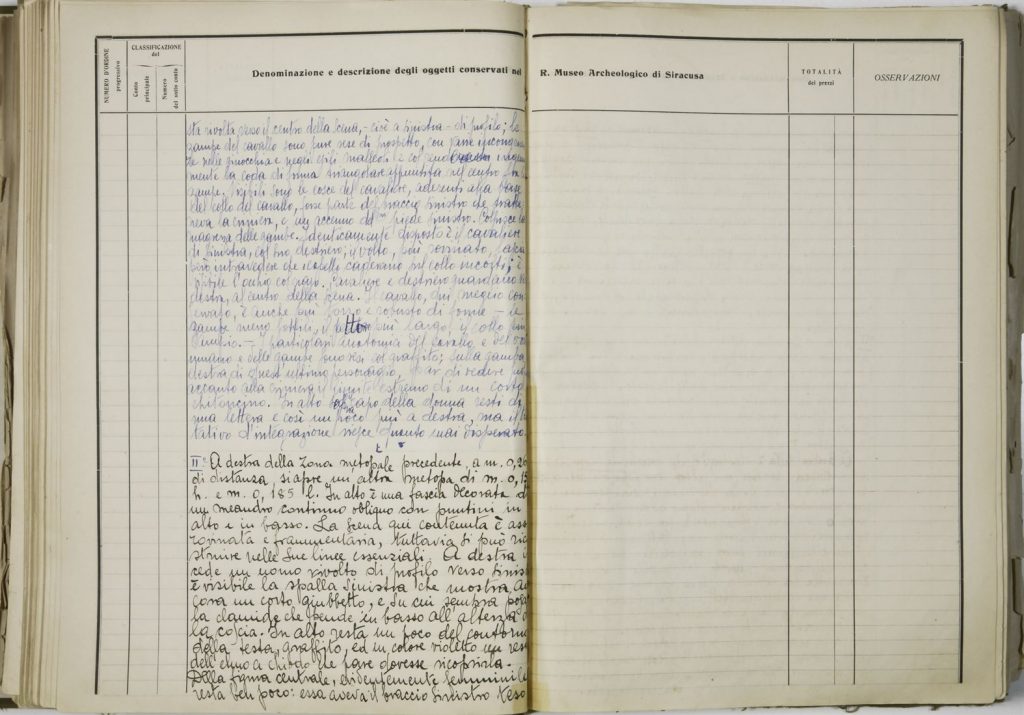 NUMERO D'ORDINE
progressivo
CLASSIFICAZIONE
del
Conto
principale
Numero
del sotto conto
Denominazione e descrizione degli oggetti conservati nel R. Museo Archeologico di Siracusa
TOTALITÀ
dei prezzi
OSSERVAZIONI
sta rivolta verso il centro della scena, - cioè a sinistra - di profilo; le
zampe del cavallo sono pure rese di prospetto, con varie
mente la coda di forma triangolare nel centro
zampe. sono le cosce del cavaliere, aderenti alla base
del collo del cavallo, forse parte del braccio sinistro che
neva la criniera, e un accenno del piede sinistro. Colpisce la
magrezza delle zampe. Identicamente disposto è il cavaliere
di sinistra, col suo destriero; il volto, più rovinato, lascia
però intravedere che i capelli cadevano sul collo
destra, al centro della scena. Il cavallo, qui meglio con
servato, è anche più e robusto di forme - le
zampe meno sottili, il petto più largo, il collo più
I particolari anatomici del cavallo e del
umano e delle zampe sono resi col graffito; sulla gamba
destra di quest'ultimo personaggio, par di vedere
accanto alla criniera il limite estremo di un corto
chitoncino. In alto capo della donna resti di
una lettera e così un poco più a destra, ma il
tativo d'integrazione riesce quanto mai disperato.
II° A destra della zona metopale precedente, a m. 0,26
di distanza, si apre un altra metopa di m. 0,15
h. e m. 0,185 l. In alto è una fascia decorata d
un meandro continuo obliquo con puntini in
alto e in basso. La scena qui contenuta è ass
rovinata e frammentaria, tuttavia si può ric
struire nelle sue linee essenziali. A destra
cede un uomo rivolto di profilo verso sinis
è visibile la spalla sinistra che mostra an
cora un corto giubbetto, e su cui sembra posa
la clamide che scende in basso all'altezza
la coscia. In alto resta un poco del contorno
della testa, graffito, ed in colore violetto un res
dell'elmo a che pare dovesse ricoprirla.
Della figura centrale, evidentemente femminile
resta ben poco: essa aveva il braccio sinistro teso